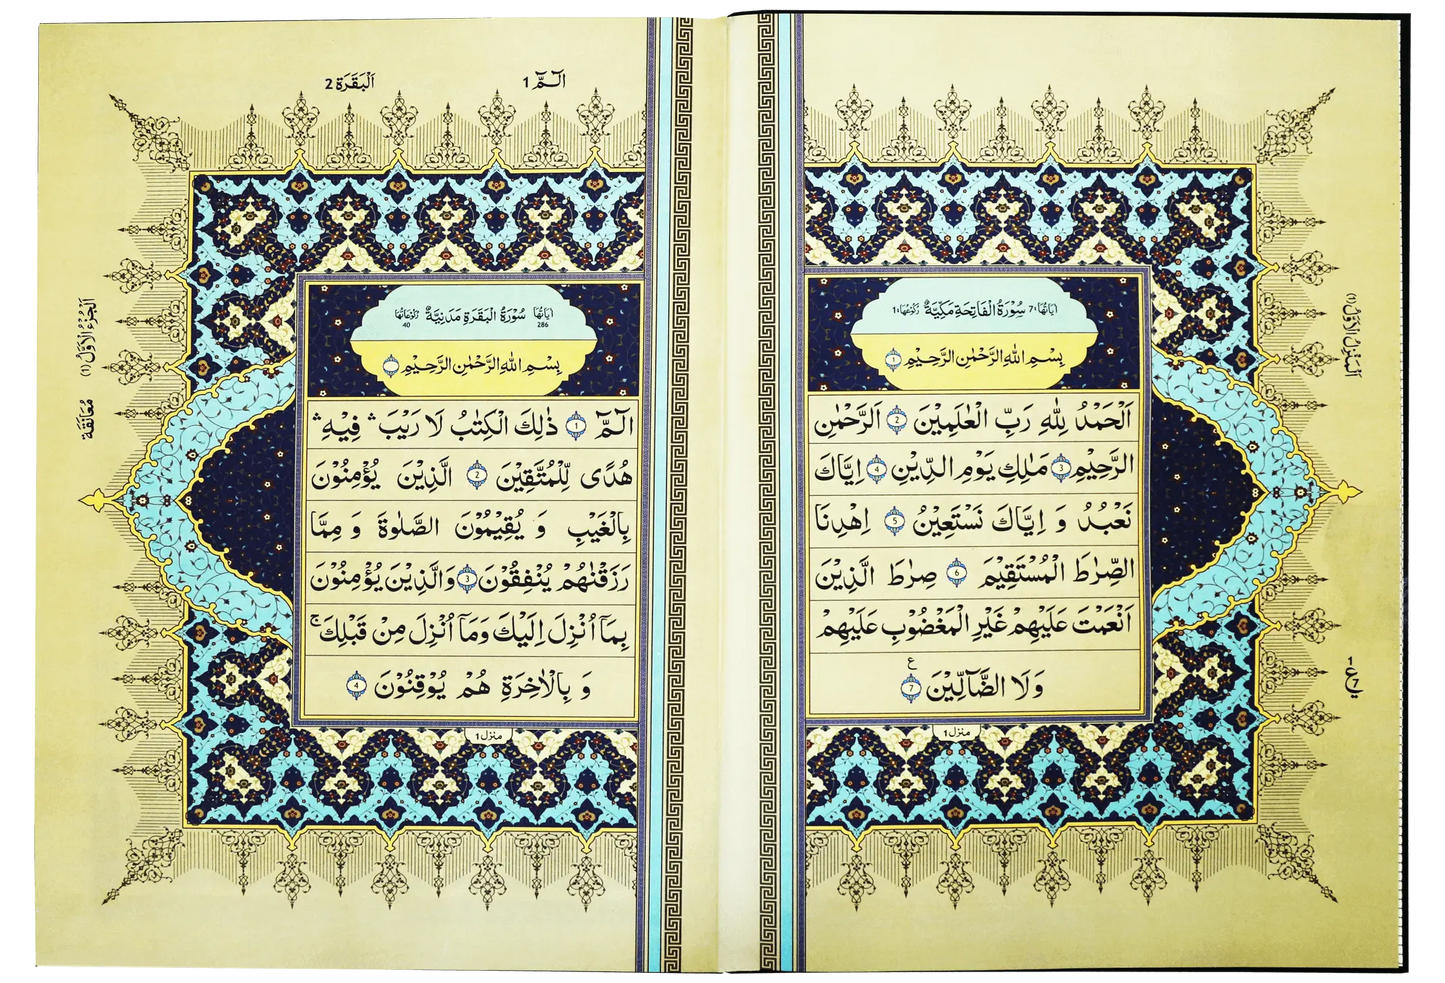 اٰيَاتُهَا ٧ سُوْرَةُ الْفَاتِحَةِ مَكِّيَّةٌ رُكُوْعُهَا ١
بِسْمِ اللّٰهِ الرَّحْمٰنِ الرَّحِيْمِ ١
اَلْحَمْدُ لِلّٰهِ رَبِّ الْعٰلَمِيْنَ 2 اَلرَّحْمٰنِ
الرَّحِيْمِ 3 مٰلِكِ يَوْمِ الدِّيْنِ 4 اِيَّاكَ
نَعْبُدُ وَ اِيَّاكَ نَسْتَعِيْنُ 5 اِهْدِنَا
الصِّرَاطَ الْمُسْتَقِيْمَ 6 صِرَاطَ الَّذِيْنَ
اَنْعَمْتَ عَلَيْهِمْ غَيْرِ الْمَغْضُوْبِ عَلَيْهِمْ
ع
وَلَا الضَّآلِّيْنَ 7
منزل 1
اَلْمَنْزِلُ الْاَوَّلُ (1)
الٓـمّٓ 1
اَلْبَقَرَة 2
اٰيَاتُهَا 286 سُوْرَةُ الْبَقَرَةِ مَدَنِيَّةٌ رُكُوْعَاتُهَا 40
بِسْمِ اللّٰهِ الرَّحْمٰنِ الرَّحِيْمِ
الٓـمّٓ 1 ذٰلِكَ الْكِتٰبُ لَا رَيْبَ ۛ فِيْهِ ۛ
هُدًى لِّلْمُتَّقِيْنَ 2 الَّذِيْنَ يُؤْمِنُوْنَ
بِالْغَيْبِ وَ يُقِيْمُوْنَ الصَّلٰوةَ وَ مِمَّا
رَزَقْنٰهُمْ يُنْفِقُوْنَ 3 وَالَّذِيْنَ يُؤْمِنُوْنَ
بِمَآ اُنْزِلَ اِلَيْكَ وَمَآ اُنْزِلَ مِنْ قَبْلِكَ ۚ
وَ بِالْاٰخِرَةِ هُمْ يُوْقِنُوْنَ 4
منزل 1
اَلْجُزْءُ الْاَوَّلُ (1)
مُعَانَقَة